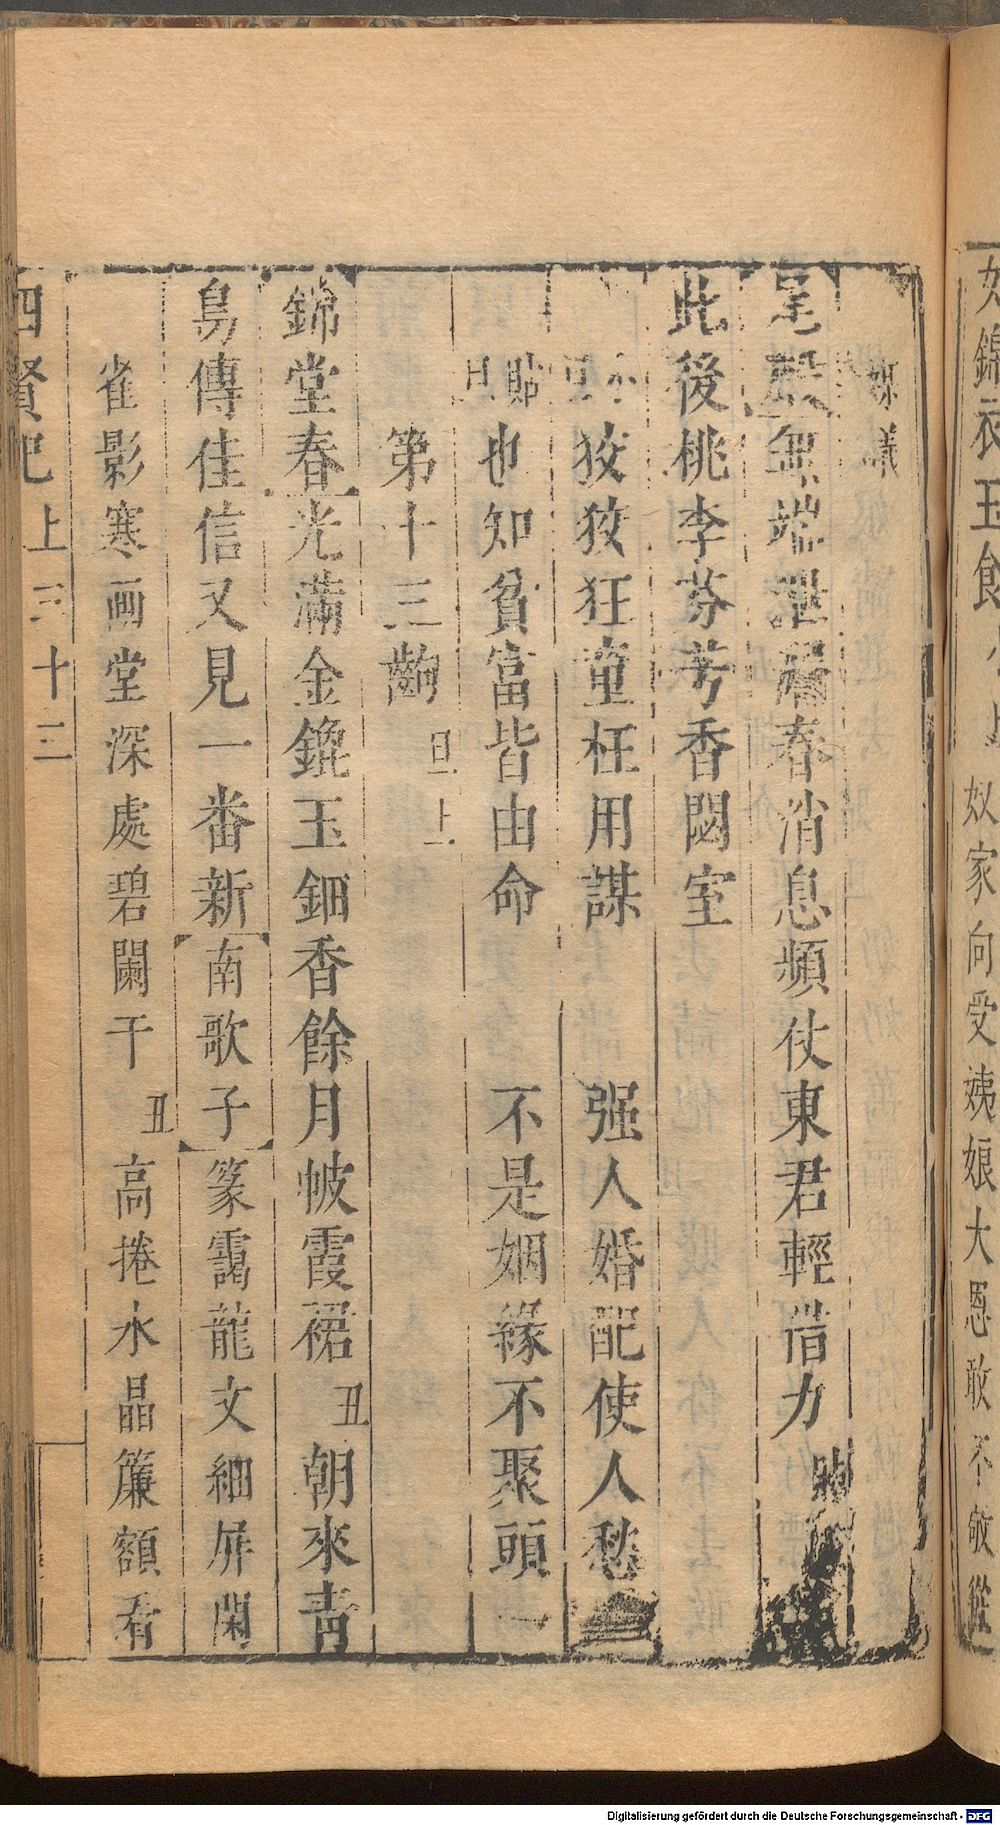 女錦衣玉食 奴家向受姨娘大恩敢不敬從
媒議
尾聲無端泄漏春消息頻仗東君輕借力
此後桃李芬芳香閟室
小旦狡狡狂童枉用謀 强人婚配使人愁
貼旦也知貧富皆由命 不是姻緣不聚頭
第十三齣 旦上
錦堂春光滿金鑱玉鈿香餘月帔霞裙 丑朝來青
鳥傳佳信又見一番新南歌子篆靄龍文細屏閑
雀影寒画堂深處碧闌干 丑高捲水晶簾額看
四賢記 上 三十三
Digitalisierung gefördert durch die Deutsche Forschungsgemeinschaft - DFG